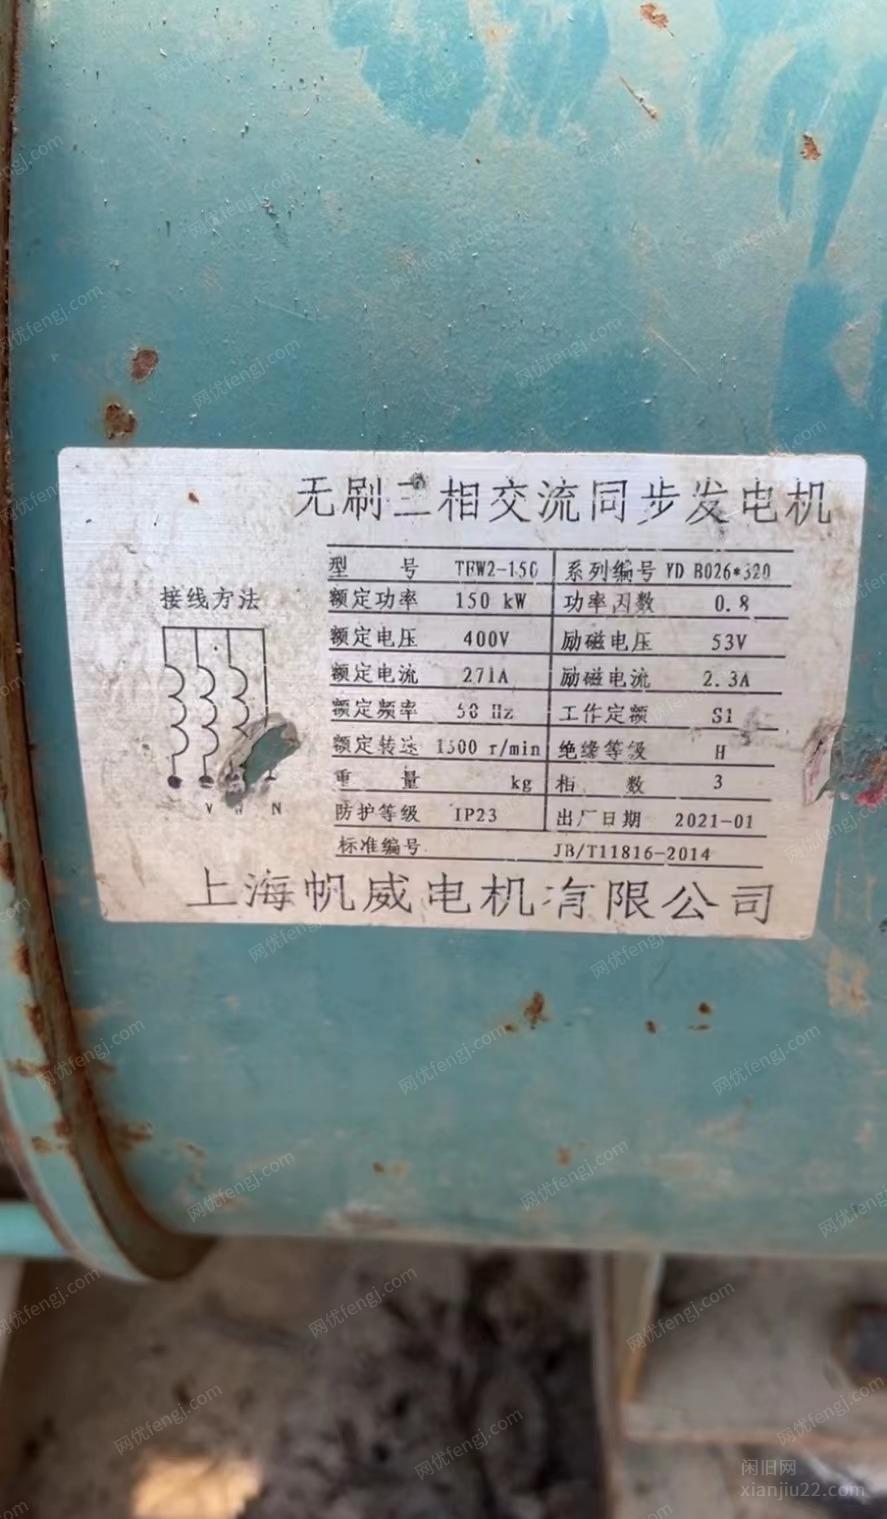 无刷三相交流同步发电机
接线方法
V N
型 号 TFW2-150 系列编号 YD B026*320
额定功率 150 kW 功率因数 0.8
额定电压 400V 励磁电压 53V
额定电流 271A 励磁电流 2.3A
额定频率 50 Hz 工作定额 S1
额定转速 1500 r/min 绝缘等级 H
重 量 kg 相 数 3
防护等级 IP23 出厂日期 2021-01
标准编号 JB/T11816-2014
上海帆威电机有限公司
闲旧网
xianjiu22.com
网优fengj.com